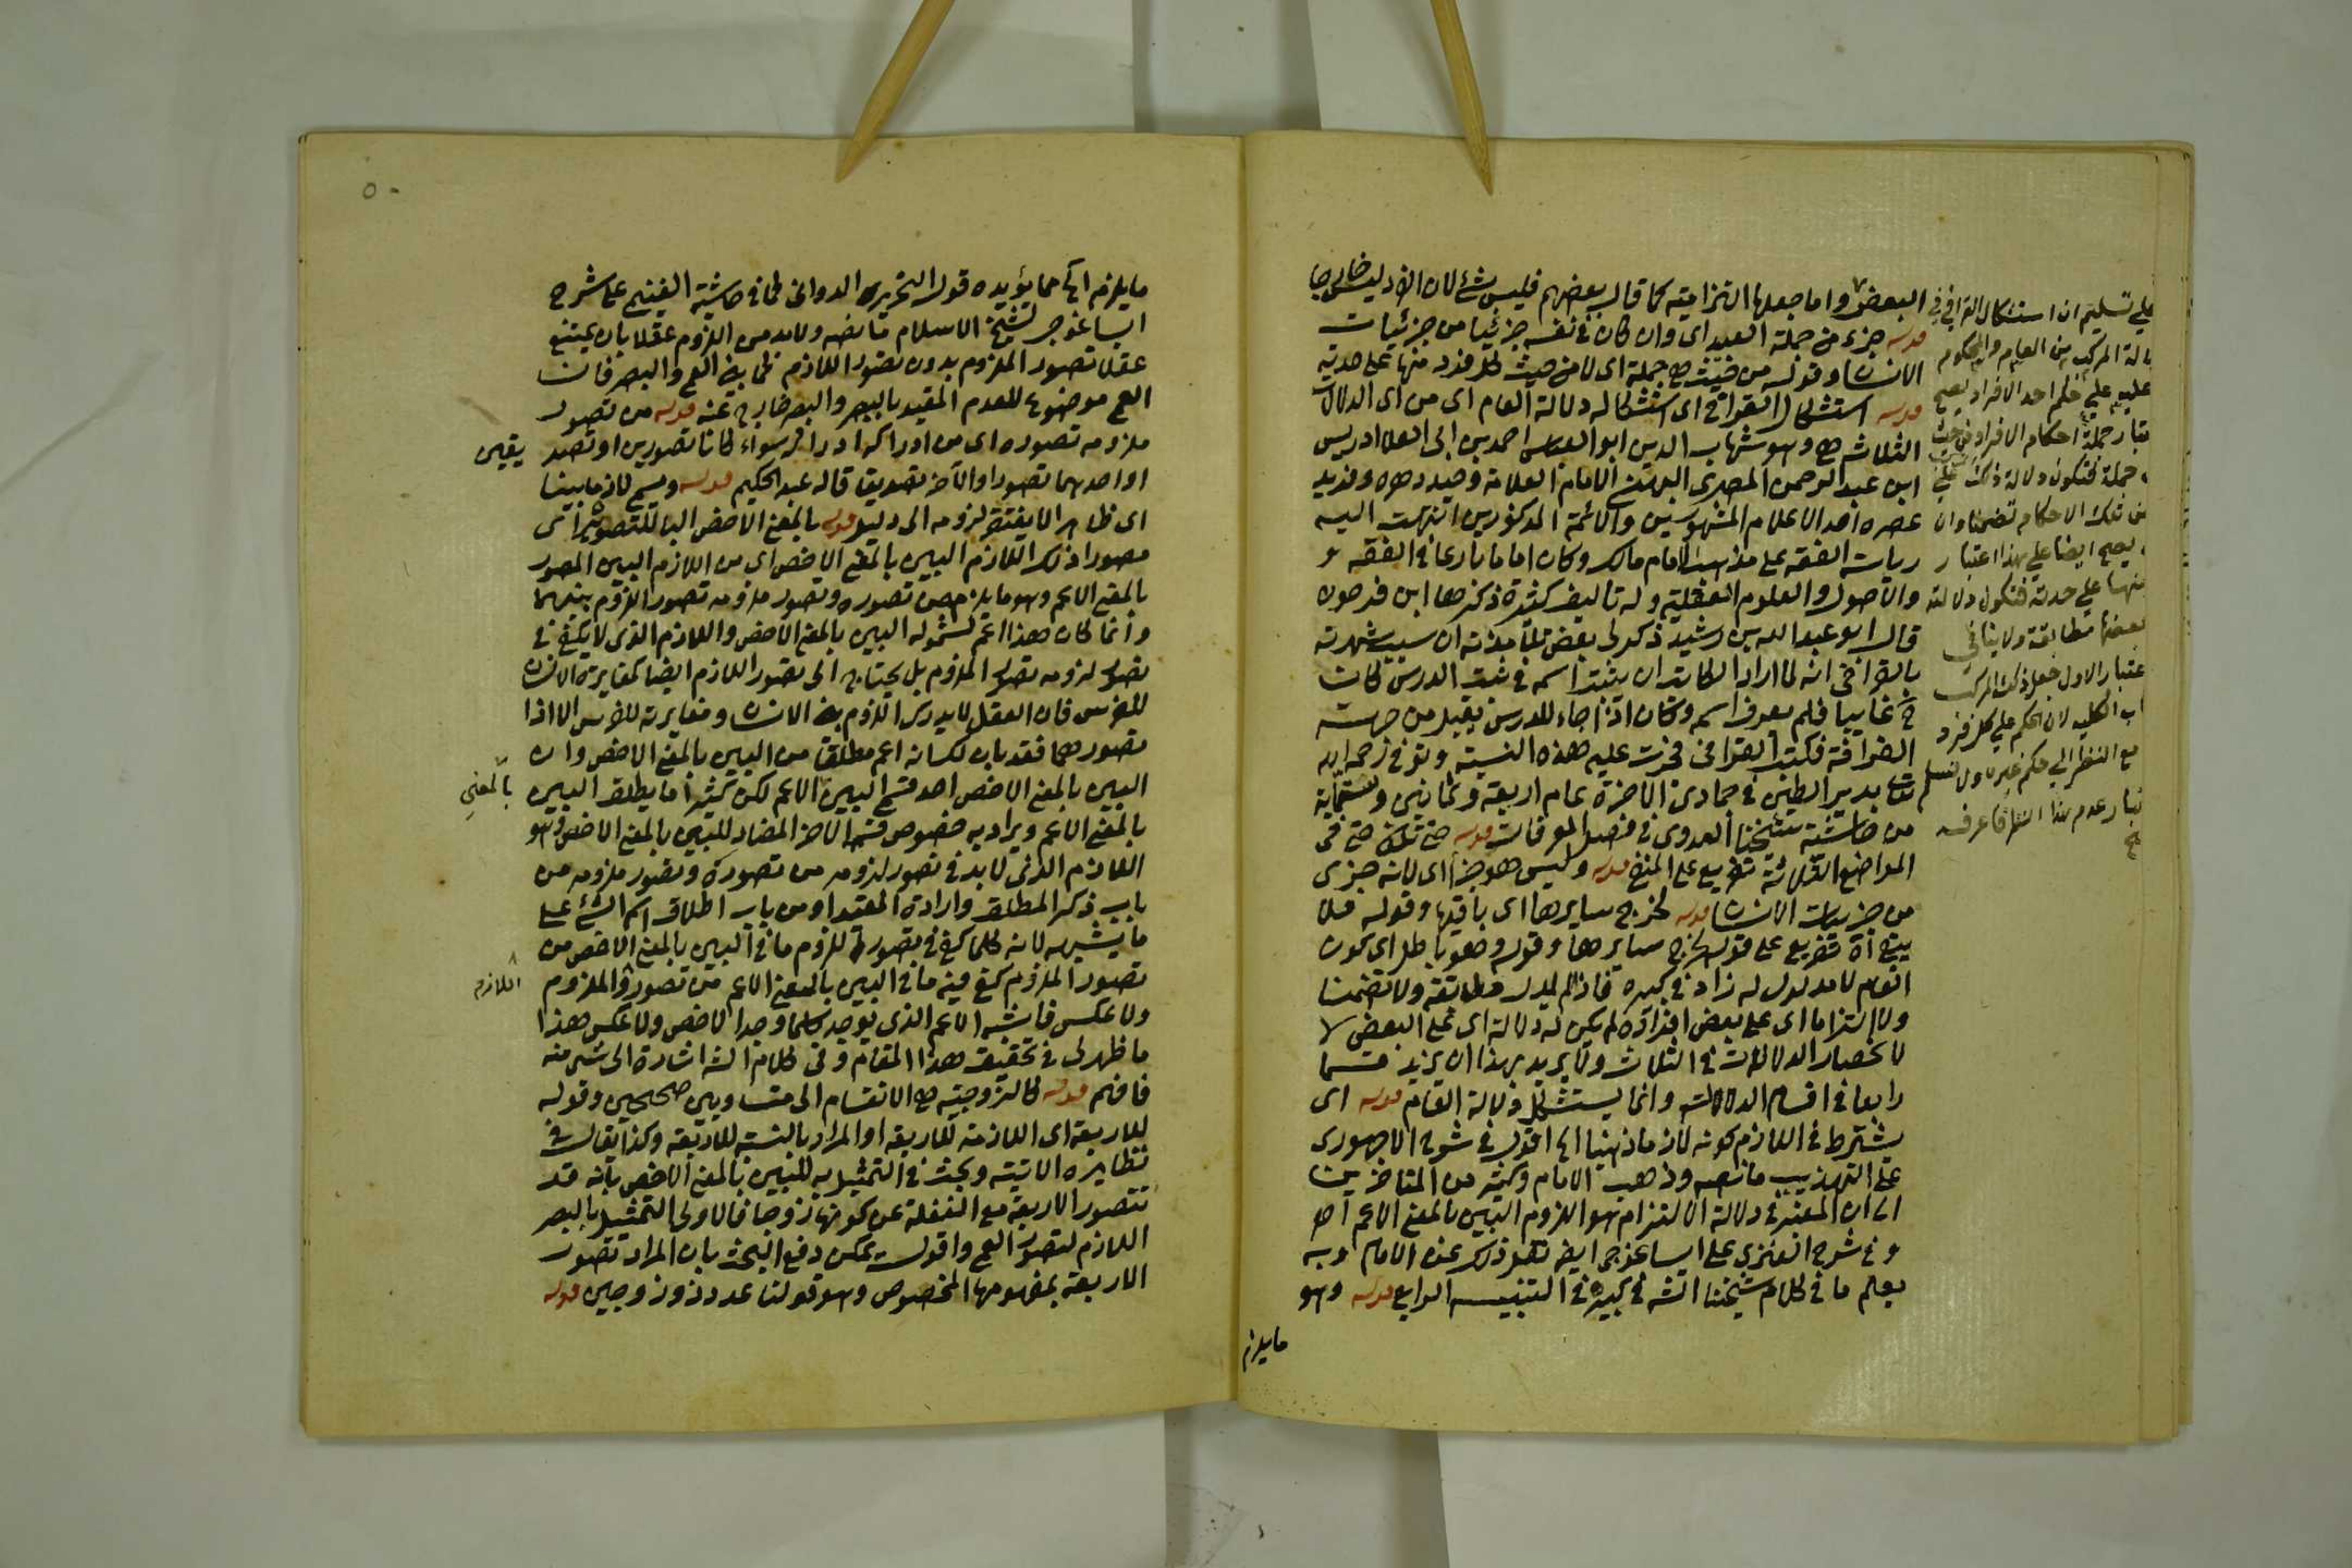 البعض واما جعلها التزامية كما قال بعضهم فليس بشئ لان الفرد ليس خارجا
قوله جزء من جملة العبيد اى وان كان فى نفسه جزئيا من جزئيات
الانسان وقوله من حيث هى جملة اى لا من حيث كل فرد منها على حدته
قوله استشكال القرافى اى استشكاله دلالة العام اى من اى الدلالات
الثلاث هى وهو شهاب الدين ابو العباس احمد بن ابى العلا ادريس
ابن عبد الرحمن المصرى البهنسى الامام العلامة وحيد دهره وفريد
عصره احد الاعلام المشهورين والائمة المذكورين انتهت اليه
رياسة الفقه على مذهب الامام مالك وكان اماما بارعا فى الفقه و
والاصول والعلوم العقلية وله تاليف كثيرة ذكرها ابن فرحون
قال ابو عبد الله بن رشيد ذكر لى بعض تلامذته ان سبب شهرته
بالقرافى انه لما اراد الكاتب ان يثبت اسمه فى ثبت الدرس كان
ح غايبا فلم يعرف اسمه وكان اذا جاء للدرس يقبل من جهة
القرافة فكتب القرافى فجرت عليه هذه النسبة وتوفى رحمه الله
بدير الطين فى جمادى الاخرة عام اربعة وثمانين وستماية
من حاشية شيخنا العدوى فى فصل المعرفات قوله حتى تكون حتى فى
المواضع الثلاثة تفريع على المنفى قوله وليس هو جزأ اى لانه جزى
من جزيات الانسان قوله لخرج سايرها اى باقيها وقوله فلا
يبقى اه تفريع على قوله لخرج سايرها وقوله وهو باطل اى كون
العام لا مدلول له زاد فى كبيره فاذا لم يدل مطابقة ولا تضمنا
ولا التزاما اى على بعض افراده لم يكن له دلالة اى على البعض لا
لانحصار الدلالات فى الثلاث ولا يريد بهذا ان يزيد قسما
رابعا فى اقسام الدلالات وانما يستشكل دلالة العام قوله اى
يشترط فى اللازم كونه لازما ذهنيا اه اقول فى شرح الاجهورى
على التهذيب ما نصه وذهب الامام وكثير من المتاخرين
الى ان المعتبر فى دلالة الالتزام هو اللزوم البين بالمعنى الاعم اه
و فى شرح الغنزى على ايساغوجى ايض نحو ذلك عن الامام وبه
يعلم ما فى كلام شيخنا الشه فى كبيره فى التنبيه الرابع قوله وهو
مايلزم
على تسليم ان استشكال القرافى فى
المركب من العام والمحكوم
عليه على حكم احد الافراد يصح
جملة احكام الافراد من حيث
جملة فتكون دلالة ذلك على
من تلك الاحكام تضمنا وان
يصح ايضا على هذا اعتبار
منها على حدته فتكون دلالته
مطابقة ولا ينافى
الاول جعل ذلك المركب
الكليه لان الحكم على كل فرد
مع النظر الى حكم غيره اولا نسلم
عدم هذا النظر فاعرفه
٥٠
مايلزم اه مما يؤيده قول النحرير الدوانى كما فى حاشية الغنيمى على شرح
ايساغوجى لشيخ الاسلام ما نصه ولا بد من اللزوم عقلا بان يمتنع
عقلا تصور الملزوم بدون تصور اللازم كما بين العمى والبصر فان
العمى موضوع للعدم المقيد بالبصر والبصر خارج عنه قوله من تصور
ملزومه تصوره اى من ادراكه ادراكه سواء كانا تصورين او تصد
يقين
او احدهما تصورا والآخر تصديقا قاله عبد الحكيم قوله ويسمى لازما بينا
اى ظاهرا لا يفتقر لزومه الى دليل قوله بالمعنى الاخص البا للتصوير اى
مصورا ذلك اللازم البين بالمعنى الاخص اى من اللازم البين المصور
بالمعنى الاعم وهو مايلزم من تصوره وتصور ملزومه تصور اللزوم بينهما
وانما كان هذا اعم لشموله البين بالمعنى الاخص واللازم الذى لا يكفى فى
تصور لزومه تصور الملزوم بل يحتاج الى تصور اللازم ايضا كمغايرة الانسان
للفرس فان العقل لا يدرك اللزوم بين الانسان ومغايرته للفرس الا اذا
تصورهما فقد بان لك انه اعم مطلقا من البين بالمعنى الاخص وان
البين بالمعنى الاخص احد قسمى البين الاعم لكن كثيرا ما يطلق البين
بالمعنى
بالمعنى الاعم ويراد به خصوص قسمه الاخر المضاد للبين بالمعنى الاخص وهو
اللازم الذى لا بد فى تصور لزومه من تصوره وتصور ملزومه من
باب ذكر المطلق وارادة المقيد او من باب اطلاق اسم الشئ على
ما يشبهه لانه كلما كفى فى تصور لزوم ما فى البين بالمعنى الاخص من
تصور الملزوم كفى فيه ما فى البين بالمعنى الاعم من تصور والملزوم
اللازم
ولا عكس فاشبه الاعم الذى يوجد كلما وجد الاخص ولا عكس هذا
ما ظهر لى فى تحقيق هذا المقام وفى كلام الشه اشارة الى شئ منه
فافهم قوله كالزوجية هى الانقسام الى متساويين صحيحين وقوله
للاربعة اى اللازمة للاربعة او المراد بالنسبة للاربعة وكذا يقال فى
نظايره الاتية وبحث فى التمثيل به للبين بالمعنى الاخص بانه قد
تتصور الاربعة مع الغفلة عن كونها زوجا فالاولى التمثيل بالبصر
اللازم لتصور العمى واقول يمكن دفع البحث بان المراد تصور
الاربعة بمفهومها المخصوص وهو قولنا عدد ذو زوجين قوله